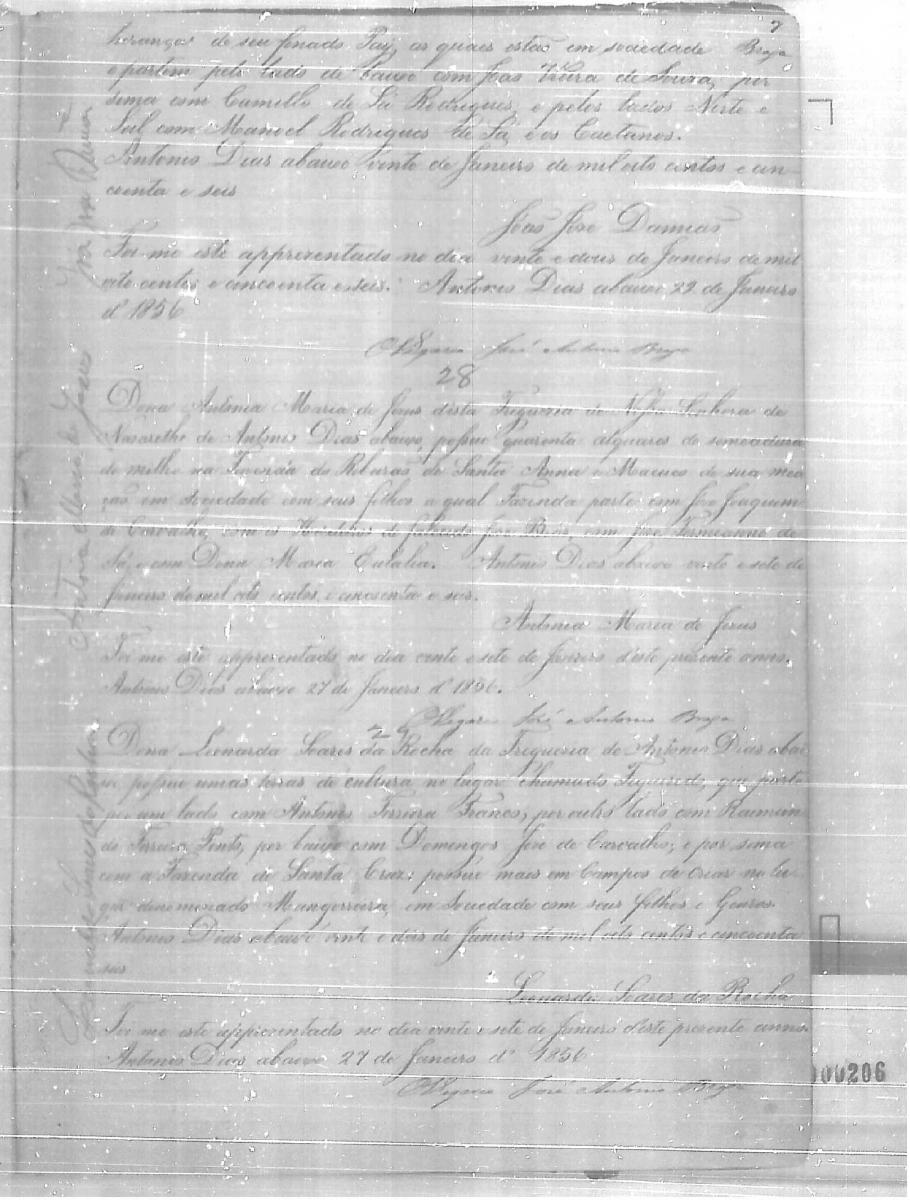 7
Braga
herança de seu finado Pay, as quaes estão em sociedade
e partem pelo lado de baixo com João Vieira de Souza, por
sima com Camillo de Sá Rodrigues, e pelos lados Norte e
Sul com Manoel Rodrigues de Sá, e os Caetanos.
Antonio Dias abaixo vinte de Janeiro de mil oito centos e cin-
coenta e seis
João José Damião
Foi me este apprezentado no dia vinte e dous de Janeiro de mil
oito centos e cincoenta e seis. Antonio Dias abaixo 22 de Janeiro
d' 1856
O Vigario José Antonio Braga
28
Dona Antonia Maria de Jesus d'esta Freguezia de Nossa Senhora de
Nazarethe de Antonio Dias abaixo, possue quarenta alqueires de semeadura
de milho na Fazenda do Ribeirão de Santa Anna e Macuco de sua mea-
ção em sociedade com seus filhos a qual Fazenda parte com José Joaquim
de Carvalho, com os Herdeiros do falecido José Braz, com José Fernandes de
Sá, e com Dona Maria Eulalia. Antonio Dias abaixo vinte e sete de
Janeiro de mil oito centos e cincoenta e seis.
Antonia Maria de Jesus
Foi me este apprezentado no dia vinte e sete de Janeiro d'este prezente anno.
Antonio Dias abaixo 27 de Janeiro d' 1856.
O Vigario José Antonio Braga
29
Dona Leonarda Soares da Rocha da Freguezia de Antonio Dias abai-
xo possue umas terras de cultura no lugar chamado Figueiredo, que parte
por um lado com Antonio Ferreira Franco, por outro lado com Raimun-
do Ferreira Pinto, por baixo com Domingos José de Carvalho, e por sima
com a Fazenda de Santa Cruz: possue mais em Campos de criar no lu-
gar denominado Mangorreira, em Sociedade com seus filhos e Genros.
Antonio Dias abaixo vinte e dois de Janeiro de mil oito centos e cincoenta
seis
Leonarda Soares da Rocha
Foi me este apprezentado no dia vinte e sete de Janeiro d'este prezente anno.
Antonio Dias abaixo 27 de Janeiro d' 1856
O Vigario José Antonio Braga
Antonia Maria de Jesus
Leonarda Soares da Rocha
000206